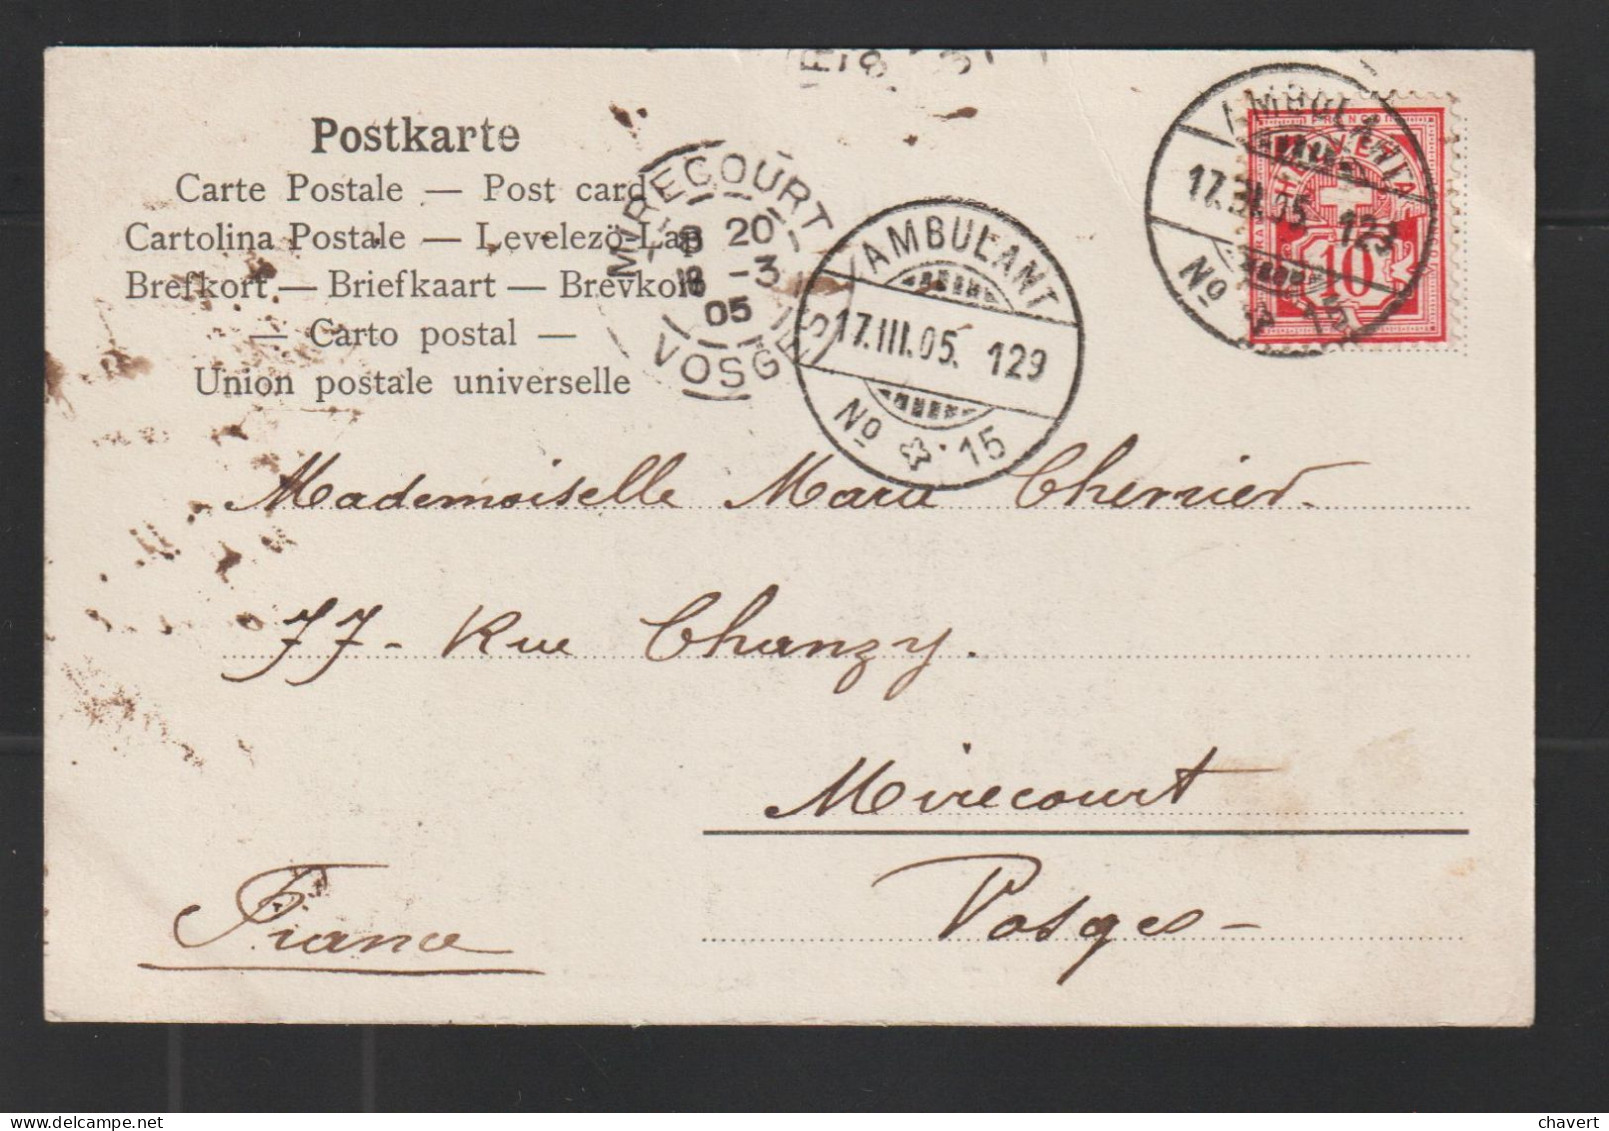 Postkarte
Carte Postale — Post card
Cartolina Postale — Levelezö-Lap
Brefkort — Briefkaart — Brevkort
— Carto postal —
Union postale universelle
MIRECOURT
8 20
18 -3
05
VOSGES
AMBULANT
17.III.05. 129
No 15
AMBULANT
17.III.05 123
No 15
HELVETIA
10
Mademoiselle Marie Cherrier.
77 - Rue Chanzy.
Mirecourt
Vosges -
France
chavert